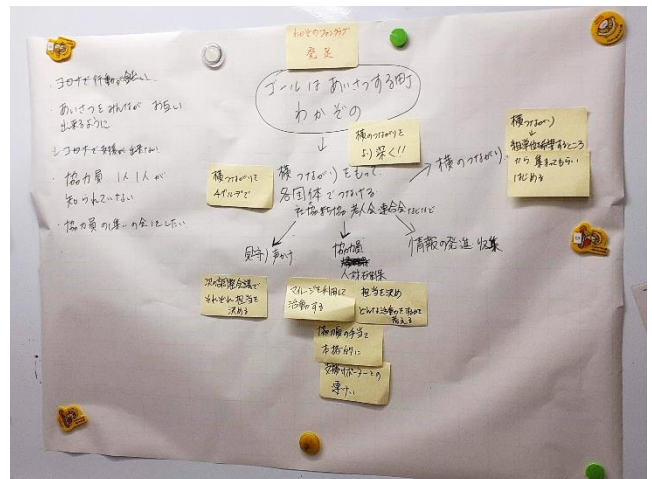 わかぞのファンクラブ
発足
ゴールはあいさつする町
わかぞの
・コロナで行動が難しい
・あいさつをみんなが お互い
出来るように
コロナで
・協力員 1人1人が
知られていない
・協力員の集いの会にしたい
横のつながりを
より深く!!
横つながりを
横つながりをもって、
各団体でつなげる
社協 町協 老人会連合会などなど
横のつながり
横つながり
↓
から 集まってもらい
はじめる
見守り声かけ
協力員
人材確保
情報の発進 収集
次の調整会議で
それぞれ担当を
決める
マイレージを利用して
活動する
担当を決め
どんな活動をするか
考える
協力員の手当て
支援サポーターとの